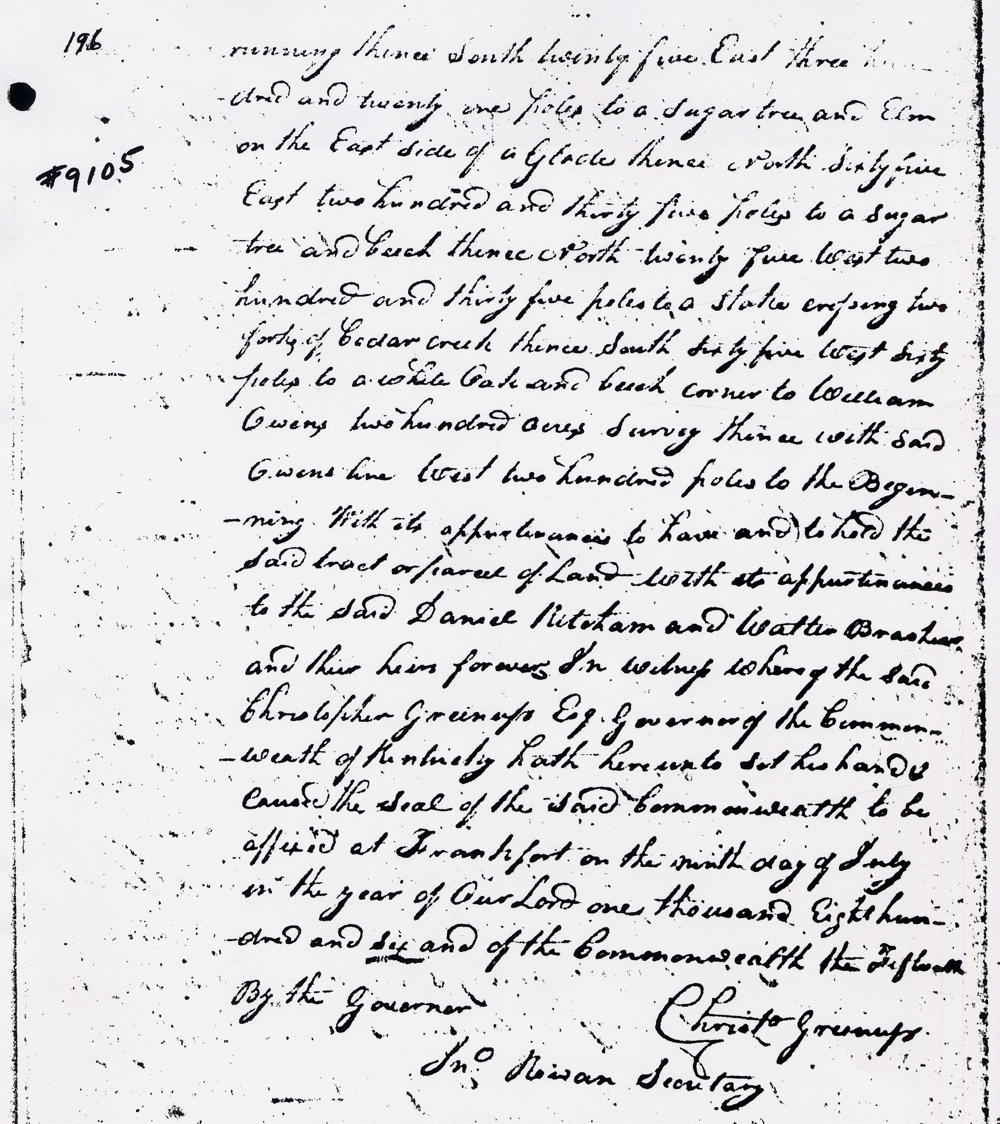 196
running thence South twenty five East three hun
-dred and twenty one poles to a Sugar tree and Elm
#9105
on the East side of a Glade thence North Sixty five
East two hundred and thirty five poles to a sugar
tree and beech thence North twenty five West two
hundred and thirty five poles to a Stake crossing two
forks of Cedar creek thence South sixty five West sixty
poles to a white Oak and beech corner to William
Owens two hundred acres Survey thence with said
Owens line West two hundred poles to the Begin-
-ning With its appurtenances to have and to hold the
said tract or parcel of Land with its appurtinances
to the said Daniel Ketcham and Walter Brashear
and their heirs forever In witness where of the said
Christopher Greenup Esq. Governor of the Common-
-weath of Kentucky hath here unto set his hand &
Caused the seal of the said Commonwealth to be
affixed at Frankfort on the ninth day of July
in the year of Our Lord one thousand Eight hun-
-dred and six and of the Commonwealth the
By the Governor
Christo Greenup
Jno. Rowan Secretary